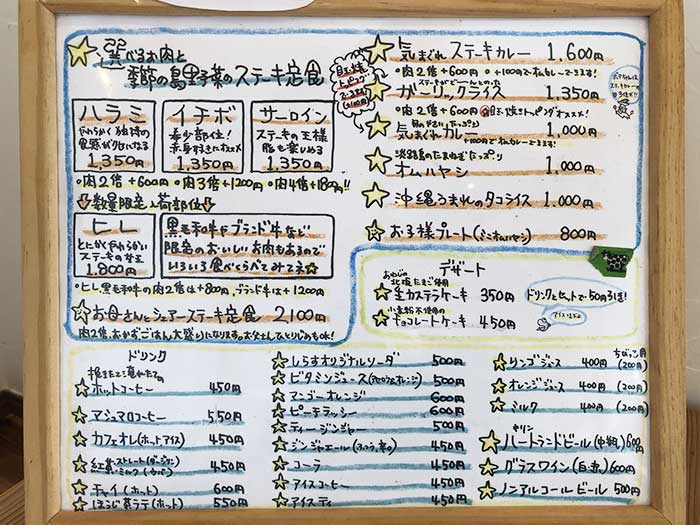 選べるお肉と
季節の島野菜のステーキ定食
ハラミ
やわらかく独特の
食感がクセになる
1,350円
イチボ
希少部位!
赤身好きにオススメ
1,350円
サーロイン
ステーキの王様
脂も楽しめる
1,350円
肉2倍+600円 肉3倍+1200円 肉4倍+1800円!!
数量限定入荷部位
ヒレ
とにかくやわらかい
ステーキの女王
1,800円
黒毛和牛やブランド牛など
限定のおいしいお肉もあるので
いろいろ食べくらべてみてネ
ヒレ、黒毛和牛の肉2倍は+800円、ブランド牛は+1200円
お母さんとシェアーステーキ定食 2,100円
肉2倍、おかず、ごはん大盛りになります。お父さんひとりじめもOK!
目玉焼
トッピング
できます
(+100円)
気まぐれステーキカレー 1,600円
肉2倍+600円 +100円でオムカレーできます!
ステーキがどーんとのった
ガーリックライス 1,350円
肉2倍+600円 目玉焼トッピングオススメ!
気まぐれカレー 1,000円
+100円でオムカレーできます!
淡路島のたまねぎたっぷり
オムハヤシ 1,000円
沖縄うまれのタコライス 1,000円
お子様プレート(ミニオムハヤシ) 800円
デザート
北坂たまご使用
生カステラケーキ 350円
小麦粉不使用の
チョコレートケーキ 450円
ドリンクとセットで50円引き!
ドリンク
挽きたてこ淹れたての
ホットコーヒー 450円
マシュマロコーヒー 550円
カフェオレ(ホット、アイス) 450円
紅茶 ストレート(ダージリン)
ミルク(ウバ) 450円
チャイ(ホット) 600円
ほうじ茶ラテ(ホット) 550円
しらすオリジナルソーダ 500円
ビタミンジュース(アセロラ&オレンジ) 500円
マンゴーオレンジ 600円
ピーチラッシー 600円
ティージンジャー 500円
ジンジャエール(ふつう、辛口) 450円
コーラ 450円
アイスコーヒー 450円
アイスティ 450円
ちびっこ用
リンゴジュース 400円 (200円)
オレンジジュース 400円 (200円)
ミルク 400円 (200円)
キリン
ハートランドビール(中瓶) 600円
グラスワイン(白・赤) 600円
ノンアルコールビール 500円